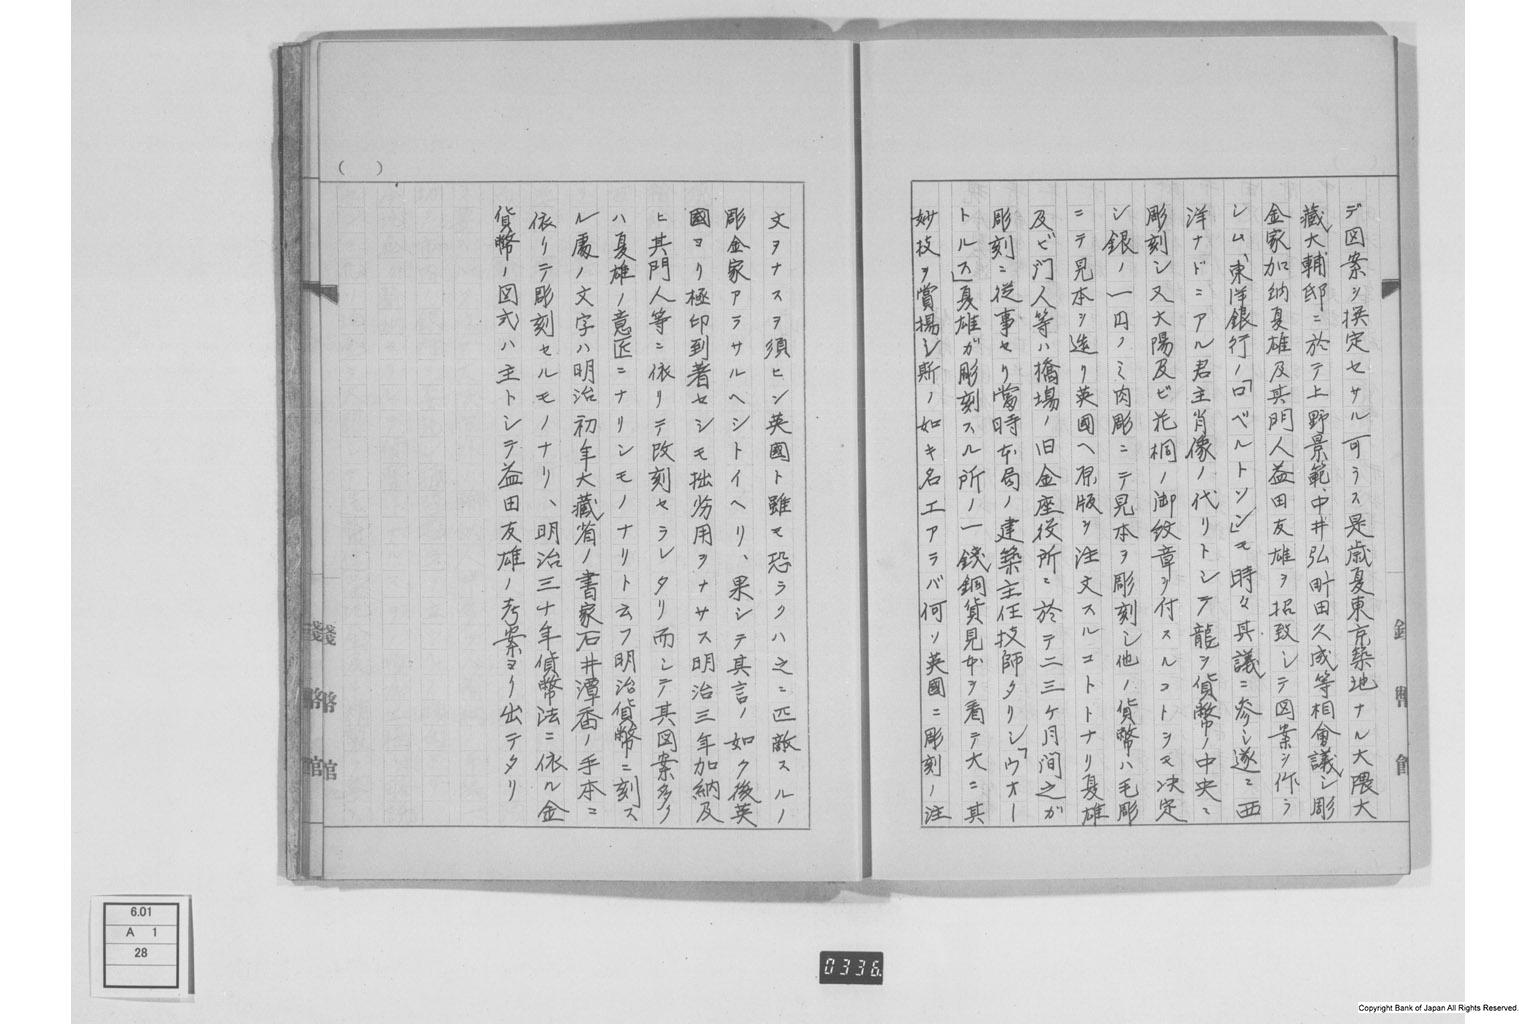 デ図案ヲ撰定セサル可ラス是歳夏東京築地ナル大隈大
藏大輔邸ニ於テ上野景範、中井弘町田久成等相會議シ彫
金家加納夏雄及其門人益田友雄ヲ招致シテ図案ヲ作ラ
シム、東洋銀行ノ「ロベルトソン」モ時々其議ニ参シ遂ニ西
洋ナドニアル君主肖像ノ代リトシテ龍ヲ貨幣ノ中央ニ
彫刻シ又大陽及ビ花桐ノ御紋章ヲ付スルコトヲモ决定
シ銀ノ一円ノミ肉彫ニテ見本ヲ彫刻シ他ノ貨幣ハ毛彫
ニテ見本ヲ造リ英國ヘ原版ヲ注文スルコトトナリ夏雄
及ビ门人等ハ橋場ノ旧金座役所ニ於テ二三ケ月间之ガ
彫刻ニ從事セリ當時本局ノ建築主任技師タリシ「ウオー
トルス」夏雄ガ彫刻スル所ノ一錢銅貨見本ヲ看テ大ニ其
妙技ヲ賞揚シ斯ノ如キ名工アラバ何ソ英國ニ彫刻ノ注
文ヲナスヲ須ヒン英國ト雖モ恐ラクハ之ニ匹敵スルノ
彫金家アラサルヘシトイヘリ、果シテ其言ノ如ク後英
國ヨリ極印到著セシモ拙劣用ヲナサス明治三年加納及
ヒ其門人等ニ依リテ改刻セラレタリ而シテ其図案多ク
ハ夏雄ノ意匠ニナリシモノナリト云フ明治貨幣ニ刻ス
ル處ノ文字ハ明治初年大藏省ノ書家石井潭香ノ手本ニ
依リテ彫刻セルモノナリ、明治三十年貨幣法ニ依ル金
貨幣ノ図式ハ主トシテ益田友雄ノ考案ヨリ出テタリ
( )
錢幣館
6.01
A 1
28
0336
Copyright Bank of Japan All Rights Reserved.